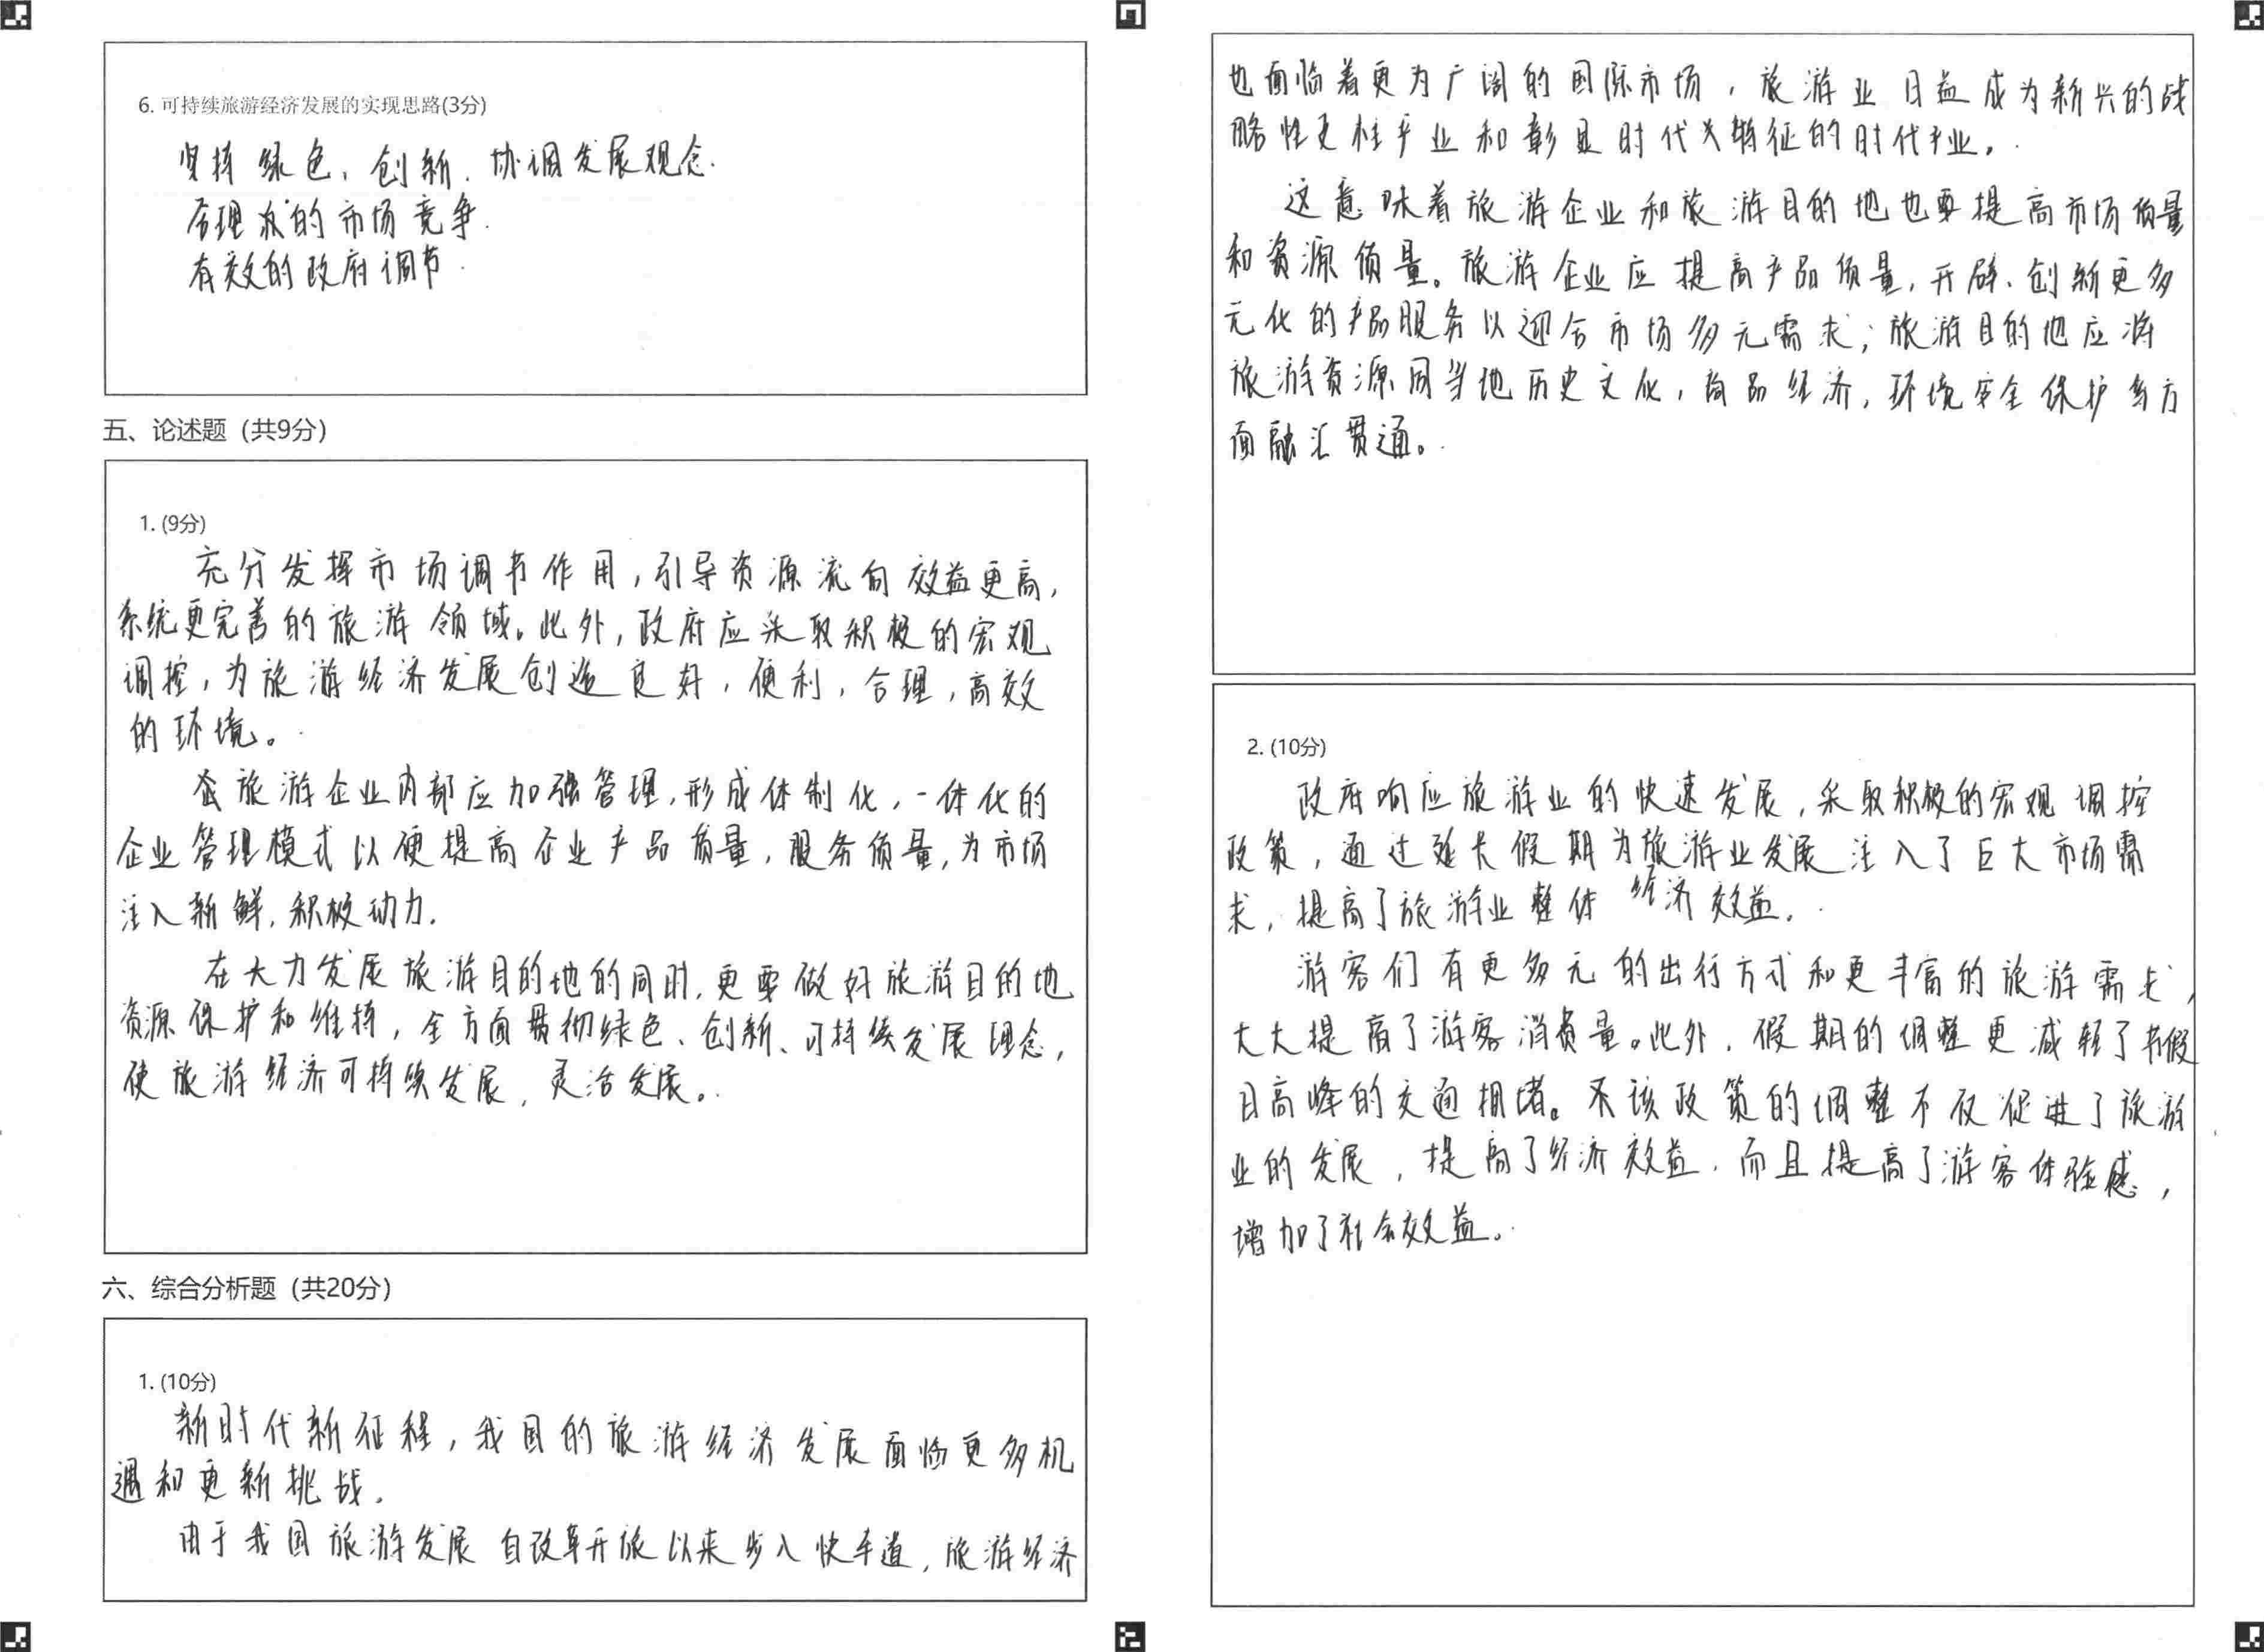 6. 可持续旅游经济发展的实现思路(3分)
坚持绿色、创新、协调发展观念.
合理 的市场竞争.
有效的政府调节.
五、论述题（共9分）
1. (9分)
充分发挥市场调节作用，引导资源流向效益更高，
系统更完善的旅游领域。此外，政府应采取积极的宏观
调控，为旅游经济发展创造良好，便利，合理，高效
的环境。
旅游企业内部应加强管理，形成体制化，一体化的
企业管理模式以便提高企业产品质量，服务质量，为市场
注入新鲜，积极动力.
在大力发展旅游目的地的同时，更要做好旅游目的地
资源保护和维持，全方面贯彻绿色、创新、可持续发展理念，
使旅游经济可持续发展，灵活发展。
六、综合分析题（共20分）
1. (10分)
新时代新征程，我国的旅游经济发展面临更多机
遇和更新挑战.
由于我国旅游发展自改革开放以来步入快车道，旅游经济
也面临着更为广阔的国际市场，旅游业日益成为新兴的战
略性支柱产业和彰显时代 特征的时代产业。
这意味着旅游企业和旅游目的地也要提高市场质量
和资源质量。旅游企业应提高产品质量，开辟、创新更多
元化的产品服务以迎合市场多元需求；旅游目的地应将
旅游资源同当地历史文化，商品经济，环境安全保护多方
面融汇贯通。
2. (10分)
政府响应旅游业的快速发展，采取积极的宏观调控
政策，通过延长假期为旅游业发展注入了巨大市场需
求，提高了旅游业整体经济效益.
游客们有更多元的出行方式和更丰富的旅游需求，
大大提高了游客消费量。此外，假期的调整更减轻了节假
日高峰的交通拥堵。 该政策的调整不仅促进了旅游
业的发展，提高了经济效益，而且提高了游客体验感，
增加了社会效益。